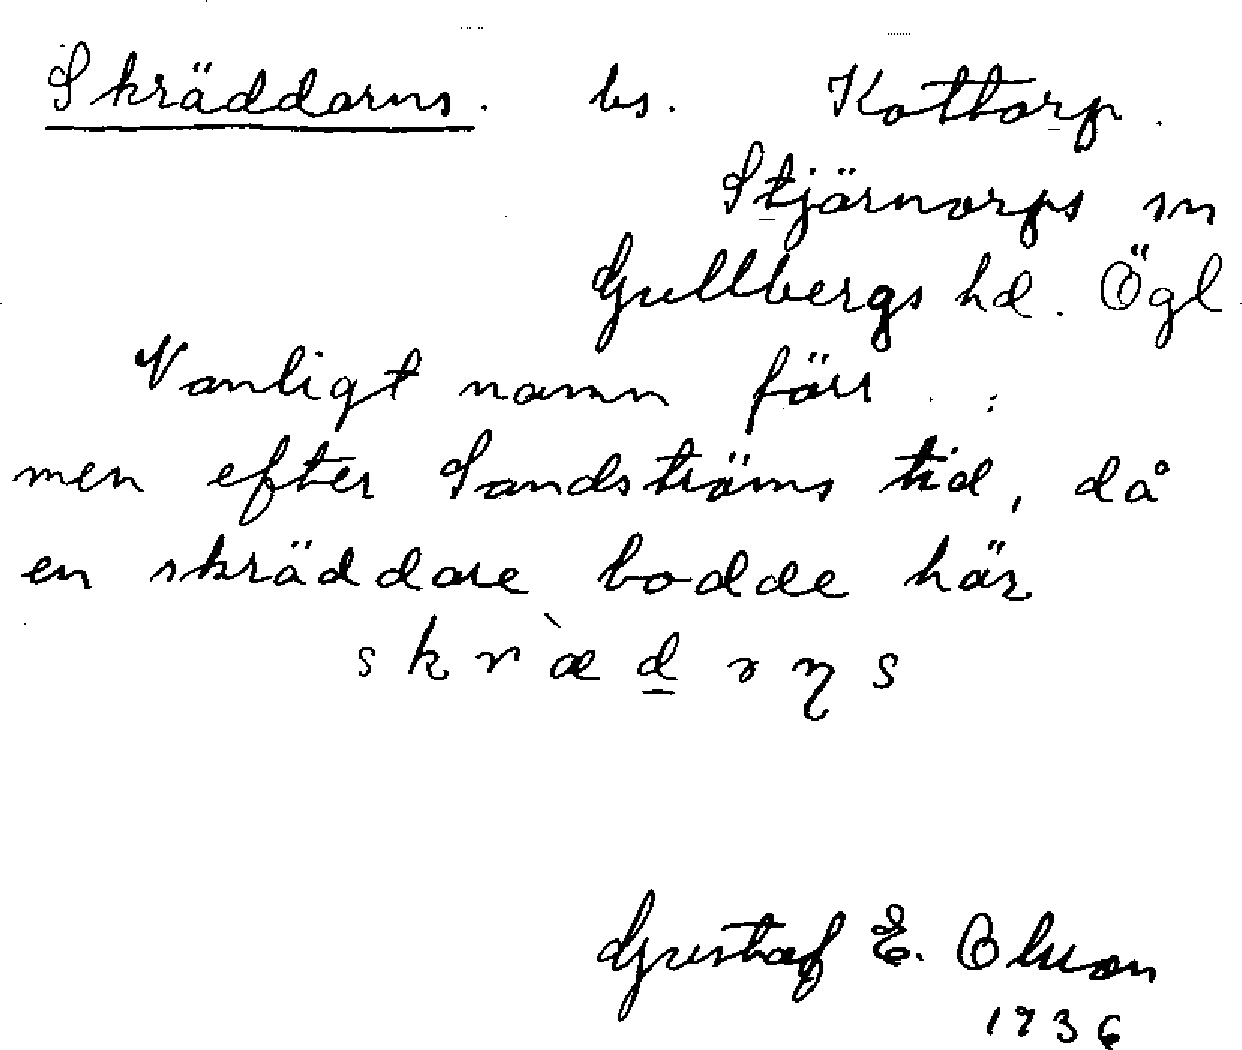 Skräddarns. bs. Kottorp.
Stjärnorps sn
Gullbergs hd. Ögl.
Vanligt namn förr
men efter Sandströms tid, då
en skräddare bodde här
skr`æd̲ɿɳs
Gustaf E. Olsson
1936